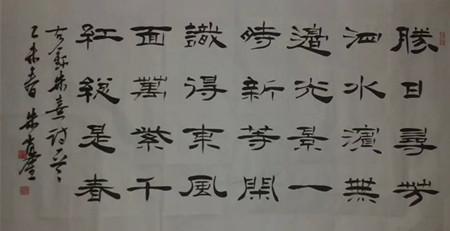 勝日尋芳
泗水濱無
邊光景一
時新等閑
識得東風
面萬紫千
紅總是春
右錄朱熹詩
乙未春 朱